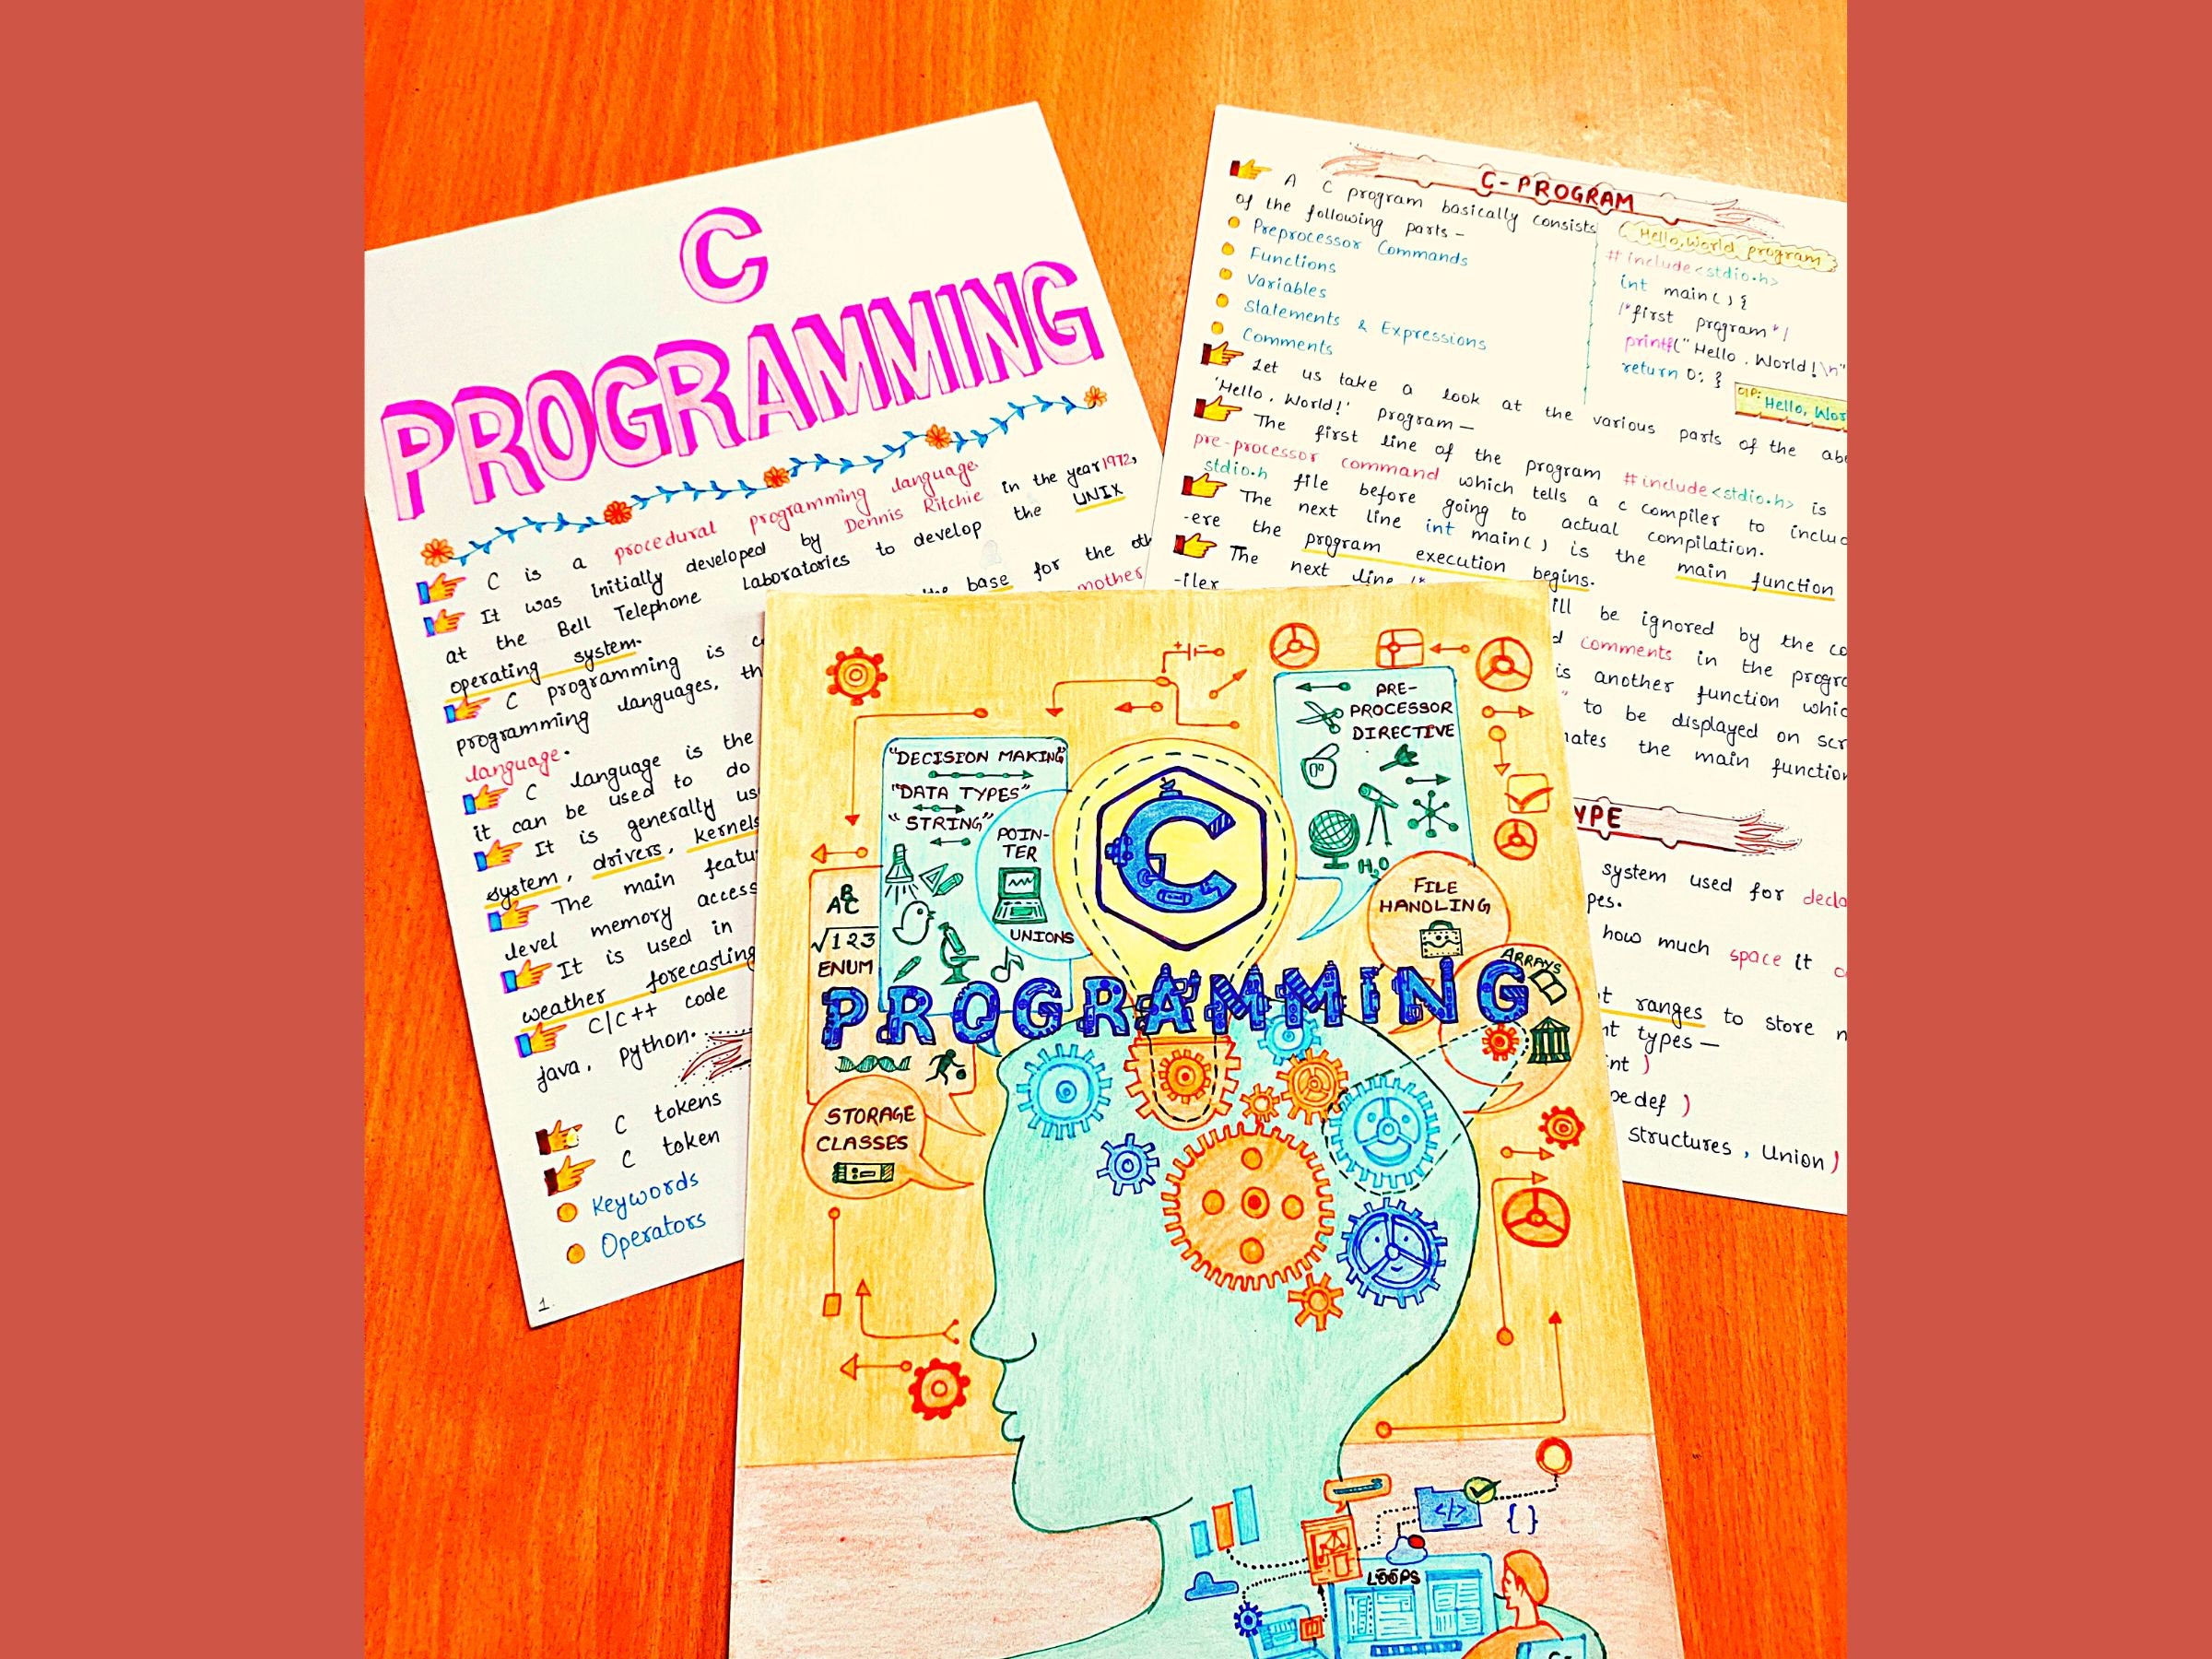 C
PROGRAMMING
C is a procedural programming language.
It was initially developed by Dennis Ritchie in the year 1972,
at the Bell Telephone Laboratories to develop the UNIX
operating system.
C programming is
the base for the
programming languages,
mother
language.
C language is the
it can be used to do
It is generally
system, drivers, kernels
The main
level memory access
It is used in
weather forecasting
C/C++ code
java, python.
C tokens
C token
Keywords
Operators
1.
C-PROGRAM
A C program basically consists
of the following parts-
Preprocessor Commands
Functions
Variables
Statements & Expressions
Comments
Hello,World program
#include<stdio.h>
int main() {
/*first program*/
printf("Hello, World!\n"
return 0; }
O/P:
Hello,
Let us take a look at the various parts of the
'Hello, World!' program—
The first line of the program #include<stdio.h> is
pre-processor command which tells a c compiler to
stdio.h file before going to actual compilation.
The next line int main() is the main function
-ere the program execution begins.
The next line /*
-iler
be ignored by the
comments in the
is another function
" to be displayed on
the main
system used for
how much space it
ranges to store
types—
structures, Union)
"DECISION MAKING"
"DATA TYPES"
"STRING"
POIN-
TER
UNIONS
PRE-
PROCESSOR
DIRECTIVE
H₂O
FILE
HANDLING
ARRAYS
ABC
√123
ENUM
C
PROGRAMMING
STORAGE
CLASSES
</>
{ }
LOOPS